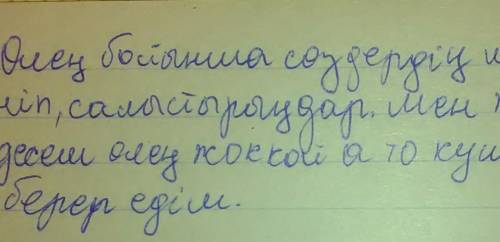 Өлең болынша сөздердің
ніп, салыстырыңдар. Мен
десеш өлең жоккой а то куш
берер едім.